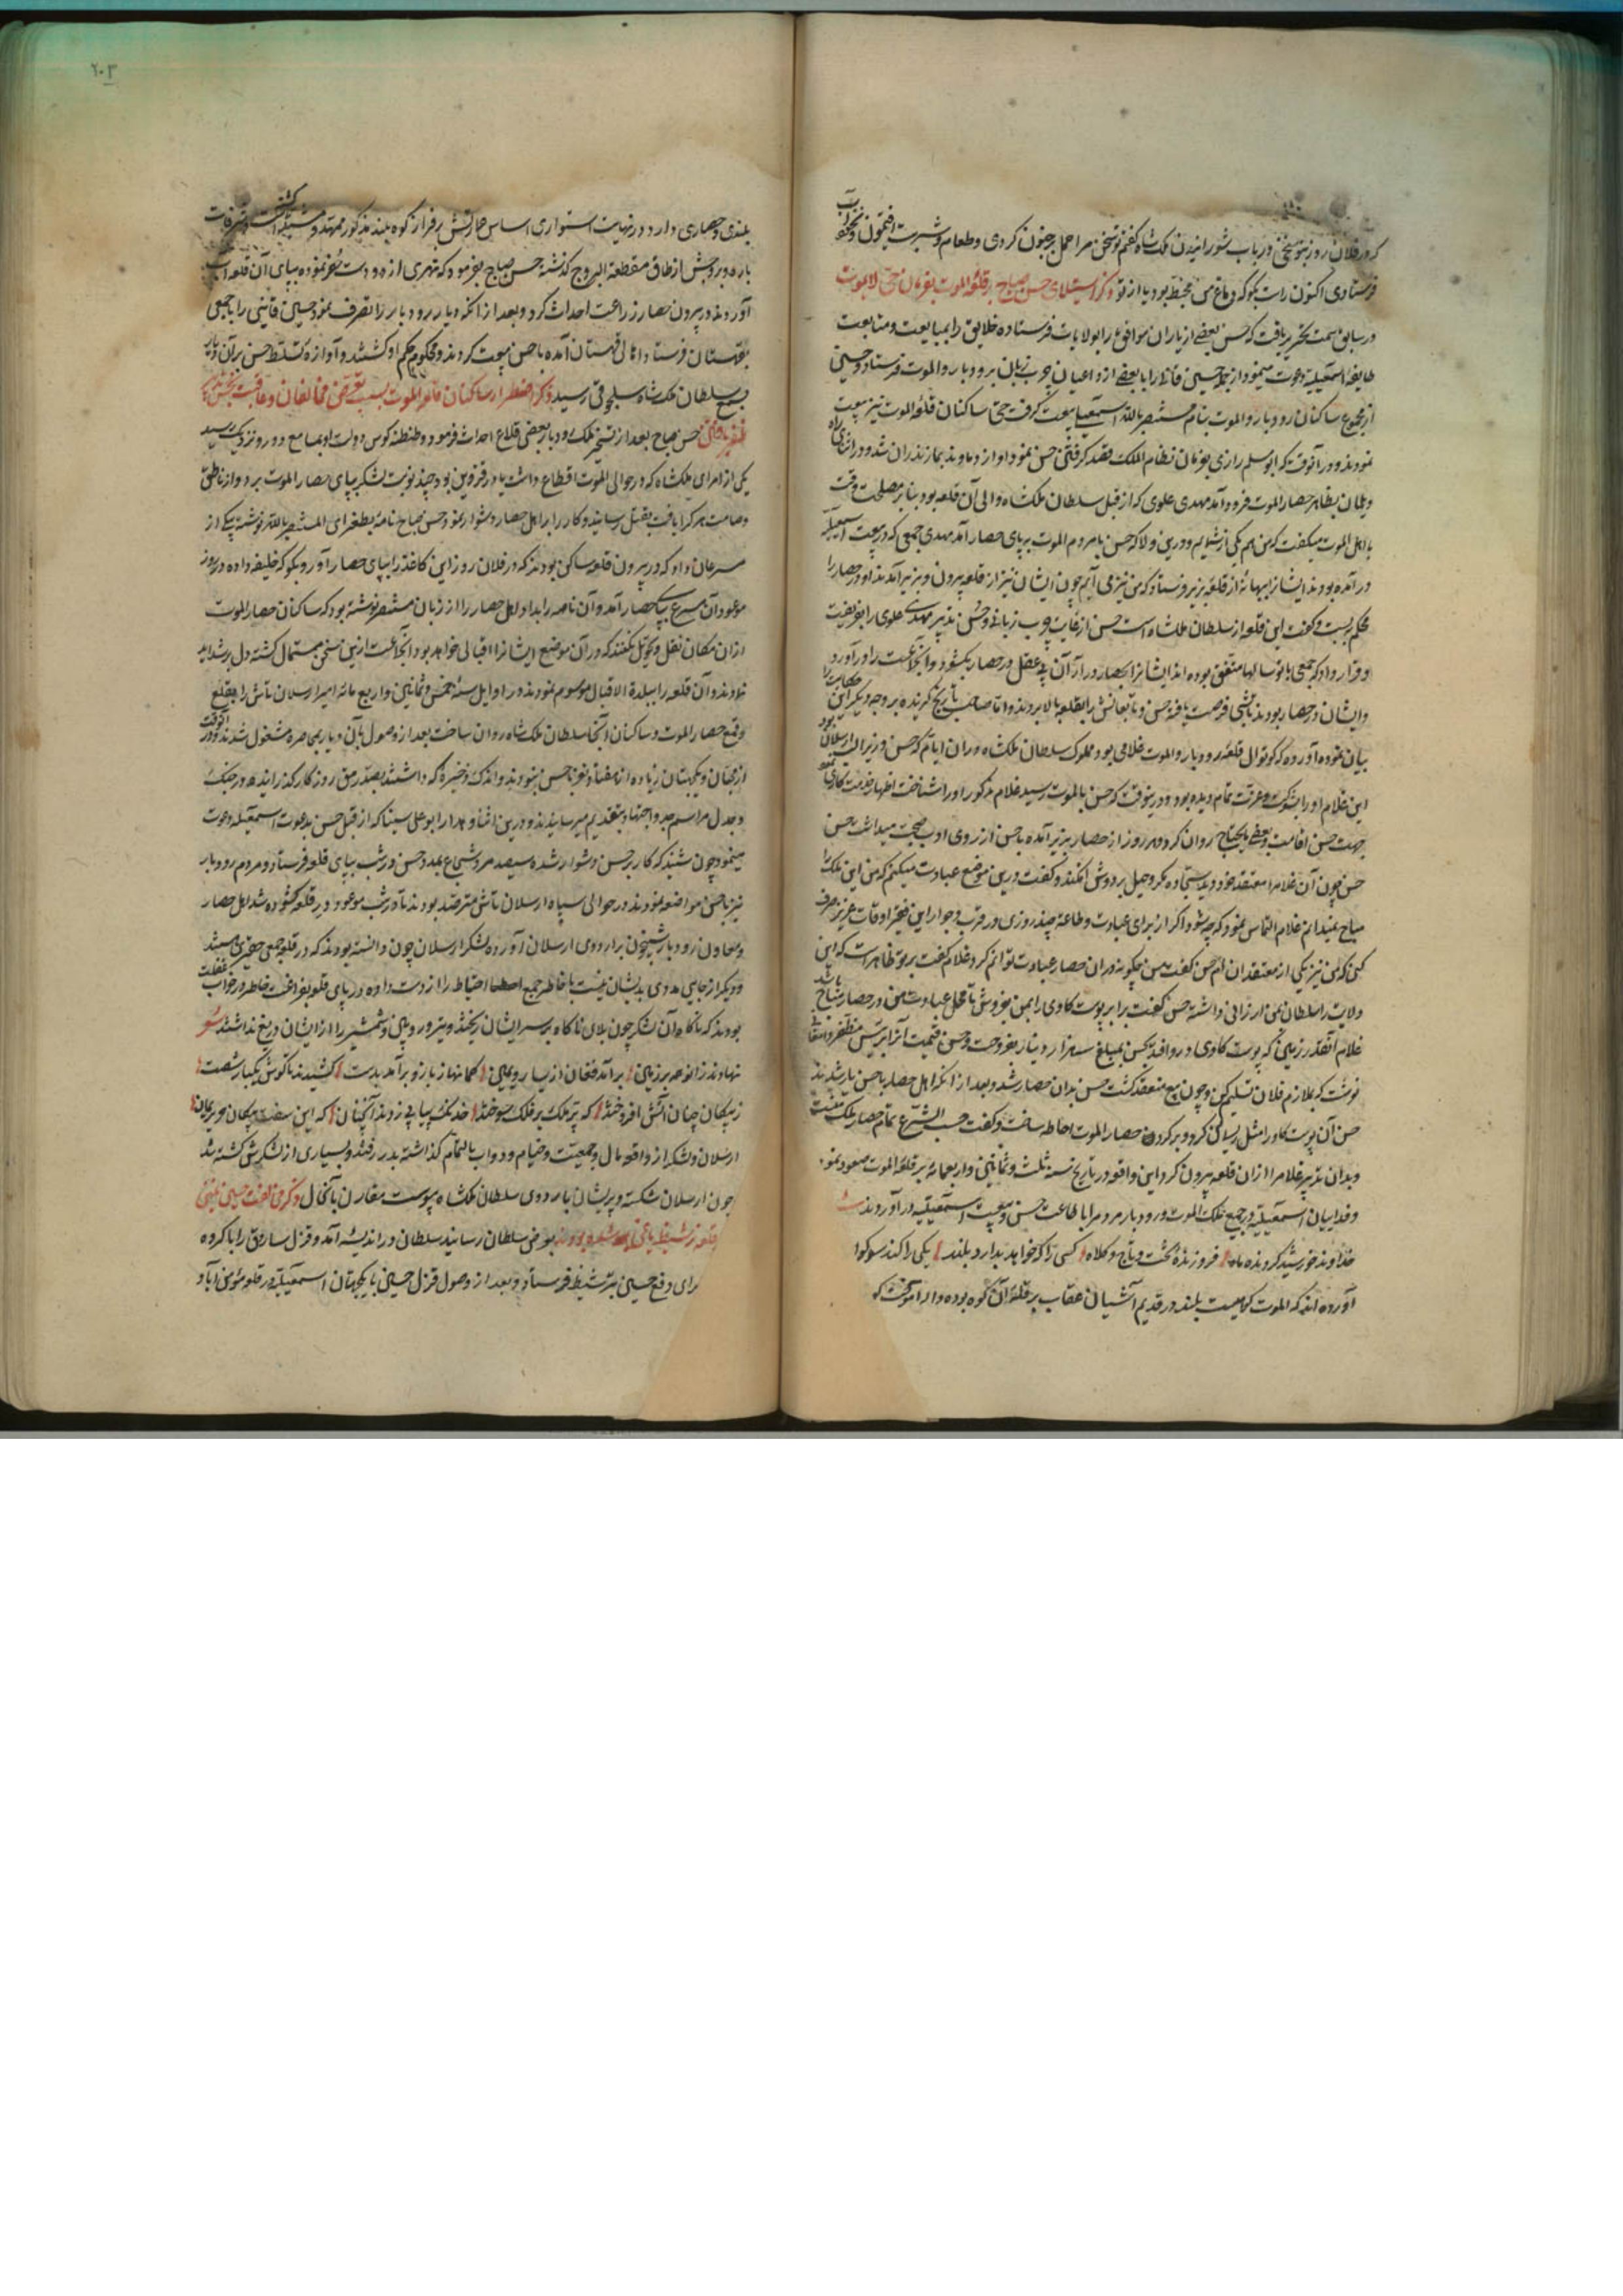 که در فلان روز با تو سخنی در باب شورانیدن ملکشاه گفتم تو سخن مرا حمل بر جنون کردی و طعام و شربت افتیمون
فرستادی اکنون راست بگو که دماغ من مخبط بود یا از تو ذکر استیلای حسن صباح بر قلعه الموت بفرمان حی لایموت
در سابق سمت تحریر یافت که حسن بعضی از یاران موافق را بولایات فرستاده خلایق را بمبایعت و متابعت
طایفه اسمعیلیه دعوت مینمود از جمله حسین قاینی را با بعضی از داعیان چرب زبان برودبار و الموت فرستاد و حسین
از مجموع ساکنان رودبار و الموت بنام مستنصر بالله اسمعیلی بیعت گرفت حتی ساکنان قلعه الموت نیز بیعت
نمودند و در آنوقت که ابو مسلم رازی بفرمان نظام الملک قصد گرفتن حسن نمود او از دماوند بمازندران شد و در اثنای راه
دیلمان بظاهر حصار الموت فرود آمد مهدی علوی که از قبل سلطان ملکشاه والی آن قلعه بود بنابر مصلحت وقت
با اهل الموت میگفت که من هم یکی از شمایم و درین ولا که حسن با مردم الموت بپای حصار آمد مهدی جمعی که در بیعت اسمعیلیه
در آمده بودند ایشانرا ببهانه از قلعه بزیر فرستاد که من نیز می آیم چون ایشان نیز از قلعه بیرون و بزیر آمدند او در حصار را
محکم بربست و گفت این قلعه از سلطان ملکشاه است حسن از غایت چرب زبانی و حسن تدبیر مهدی علوی را بفریفت
و قرار داد که جمعی با تو سالها متفق بوده اند ایشانرا بحصار در آر آن بی عقل در حصار بگشود و آنجماعت را در آورد
و ایشان در حصار بودند تا شبی فرصت یافته حسن و تابعانش را بقلعه بالا بردند و اما صاحب تاریخ گزیده بر وجه دیگر این حکایت را
بیان نموده آورده که کوتوال قلعه رودبار و الموت غلامی بود مملوک سلطان ملکشاه در آن ایام که حسن وزیر الب ارسلان بود
این غلام او را بشوکت و عزت تمام دیده بود و درینوقت که حسن بالموت رسید غلام مذکور او را شناخت اظهار خدمتکاری نمود
جهت حسن اقامت و بعضی مایحتاج روان کرد و هر روز از حصار بزیر آمده با حسن از روی ادب صحبت میداشت حسن
حسن چون آن غلام را معتقد خود دید سجاده مکر و حیل بر دوش افکند و گفت درین موضع عبادت میکنم که من این ملک را
مباح نمیدانم غلام التماس نمود که چه شود اگر از برای عبادت و طاعة چند روزی در قرب و جوار این فقیر اوقات عزیز صرف
کنی که من نیز یکی از معتقدان ام حسن گفت من چگونه در آن حصار عبادت توانم کرد غلام گفت بر تو ظاهر است که این
ولایت را سلطان بمن ارزانی داشته حسن گفت برابر پوست گاوی را بمن بفروش تا محل عبادت من در حصار مباح باشد
غلام آنقدر زمین که پوست گاوی در وافد بحسن بمبلغ سه هزار دینار بفروخت و حسن قیمت آنرا بر رئیس مظفر دامغانی
نوشت که بملازم فلان تسلیم کن و چون بیع منعقد گشت حسن بدان حصار شد و بعد از آنکه اهل حصار با حسن یار شدند
حسن آن پوست گاو را مثل ریسمان کرد و بر گرد حصار الموت احاطه ساخت و گفت حسب الشرع تمام حصار ملک منست
و بدان تدبیر غلام را از آن قلعه بیرون کرد این واقعه در تاریخ سنه ثلث و ثمانین و اربعمائه بر قلعه الموت صعود نمود
و فداییان اسمعیلیه در جمیع ملک الموت و رودبار مردم را باطاعت حسن و بیعت اسمعیلیه در آوردند
خداوند خورشید گردنده ماه فروزنده تخت و تاج و کلاه کسی را که خواهد بدارد بلند یکی را کند سوکوار
آورده اند که الموت کوهیست بلند در قدیم آشیان عقاب بر قله آن کوه بوده و اله آموخت که
۲۰۳
بلندی و حصاری دارد در نهایت استواری اساس عمارتش بر فراز کوه بلند مذکور ممهد و مشید گشته است و شرفات
باره و بروجش از طاق منقطعة البروج گذشته حسن صباح بفرمود که نهری از دو دست حفر نموده بپای آن قلعه آب
آوردند و در بیرون حصار زراعت احداث کرد و بعد از آنکه دیار رودبار را تصرف نمود حسین قاینی را با جمعی
بقهستان فرستاد و اهالی قهستان آمده با حسن بیعت کردند و محکوم حکم او گشتند و آوازه تسلط حسن بر آن دیار
بسمع سلطان ملکشاه سلجوقی رسید ذکر اضطرار ساکنان قلعه الموت بسبب تعرض مخالفان و عاقبت
ظفر یافتن حسن صباح بعد از تسخیر ملک رودبار بعضی قلاع احداث فرمود و طنطنه کوس دولت او بمسامع دور و نزدیک رسید
یکی از امرای ملکشاه که در حوالی الموت اقطاع داشت یا در قزوین بود چند نوبت لشکر بپای حصار الموت برد و از ناطق
و صامت هر کرا یافت بقتل رسانید و کار را بر اهل حصار دشوار نمود حسن صباح نامه بطغرای المستنصر بالله نوشته بیکی از
مسرعان داد که در بیرون قلعه ساکن بودند که در فلان روز این کاغذ را بپای حصار آور و بگو که خلیفه داده در روز
موعود آن مسرع بپای حصار آمد و آن نامه را بداد و اهل حصار را از زبان مستنصر نوشته بود که ساکنان حصار الموت
از آن مکان نقل و تحویل نکنند که در آن موضع ایشانرا اقبالی خواهد بود آنجماعت ازین سخن مستمال گشته دل بر شداید
نهادند و آن قلعه را ببلدة الاقبال موسوم نمودند در اوایل سنه خمس و ثمانین و اربع مائه امیر ارسلان تاش را بقلع
و قمع حصار الموت و ساکنان آنجا سلطان ملکشاه روان ساخت بعد از وصول بآن دیار بمحاصره مشغول شدند و در آنوقت
از مجان و یکجهتان زیاده از هفتاد نفر با حسن نبودند و اندک ذخیره که داشتند بسد رمق روزگار گذرانیده در جنگ
و جدل مراسم جد و اجتهاد بتقدیم میرسانیدند و درین اثنا دهدار ابو علی سینا که از قبل حسن بدعوت اسمعیلیه دعوت
مینمود چون شنید که کار بر حسن دشوار شده سیصد مرد شجاع بمدد حسن در شب بپای قلعه فرستاد و مردم رودبار
نیز با حسن مواضعه نمودند در حوالی سپاه ارسلان تاش مترصد بودند تا در شب موعود در قلعه گشوده شد اهل حصار
و معاون رودبار شبیخون بر اردوی ارسلان آوردند لشکر ارسلان چون دانسته بودند که در قلعه جمعی حقیر بیش نیستند
و دیگر از جایی مددی بدیشان نیست با خاطر جمع اصطلا احتیاط را از دست داده در پای قلعه بفراغت خاطر در خواب غفلت
بودند که ناگاه آن لشکر چون بلای ناگاه بر سر ایشان ریختند و تیر و رویین و شمشیر را از ایشان دریغ نداشتند شعر
نهادند زانو همه بر زمین برآمد فغان از یسار و یمین کمانها ز بازو برآمد بدست کشیدند تا گوش یکبار شصت
ز پیکان چنان آتش افروختند که پر ملک بر فلک سوختند خدنگ پیاپی زدند آنچنان که این سفت پیکان
ارسلان و لشکر از واقعه مال و جمعیت و خیام و دواب بالتمام گذاشته بدر رفتند و بسیاری از لشکرش کشته شد
چون ارسلان شکسته و پریشان باردوی سلطان ملکشاه پیوست مقارن بآنحال ذکر مخالفت حسین قاینی
بعرض سلطان رسانیدند سلطان در اندیشه آمد و قزل سارق را با گروه
برای دفع حسین بترشیز فرستاد و بعد از وصول قزل حسین با یکجهتان اسمعیلیه در قلعه مؤمن آباد